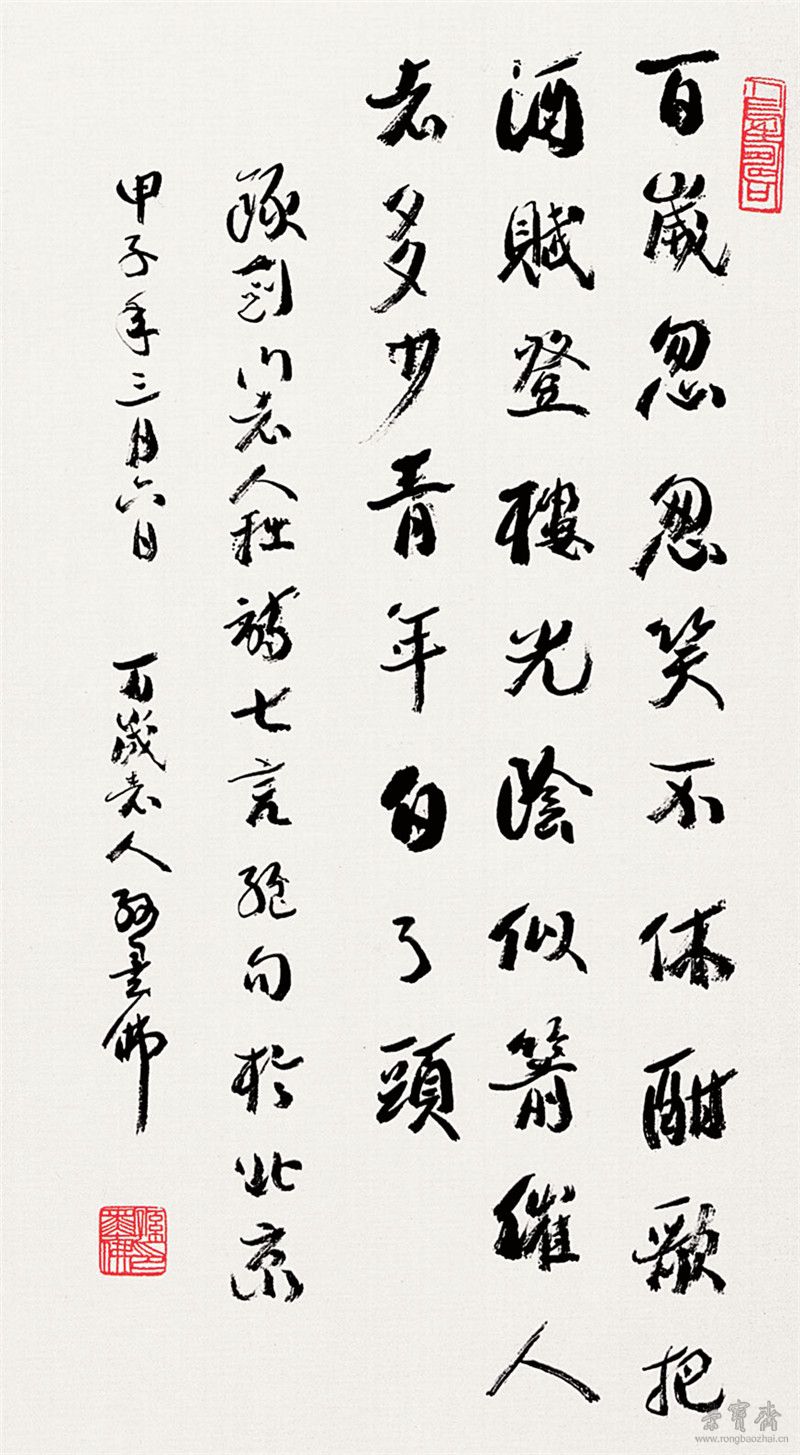 百歲忽忽笑不休酣歌把
酒賦登樓光陰似箭催人
老多少青年白了頭
琢劍門老人種諸七言絕句於北京
甲子年三月六日 百歲老人孫墨佛
榮寶齋
www.rongbaozhai.cn